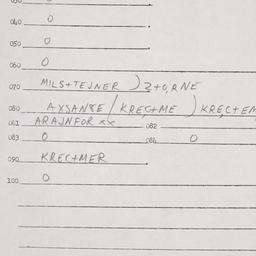 040 0
050 0
060 0
070 MILS+TEJNER ) Z+O,RNE
080 AXSANSE / KREC+ME ) KREC+EM
081 ARAJNFOR XX 082
083 0 084 0
090 KREC+MER
100 0